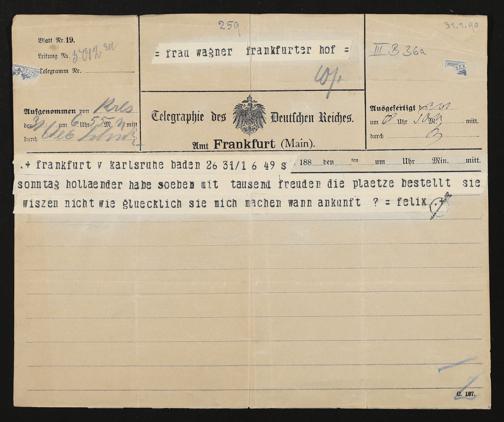 259
31.1.90
Blatt Nr. 19.
Leitung Nr.
Telegramm Nr.
= frau wagner frankfurter hof =
III B 36a
Aufgenommen von
den um 6 Uhr 55 Min. mitt.
durch
Telegraphie des Deutschen Reiches.
Amt Frankfurt (Main).
Ausgefertigt
um Uhr Min. mitt.
durch
.+ frankfurt v karlsruhe baden 26 31/1 6 49 s 188 ten um Uhr Min. mitt.
sonntag hollaender habe soeben mit tausend freuden die plaetze bestellt sie
wiszen nicht wie gluecklich sie mich machen wann ankunft ? = felix .+
C. 187.